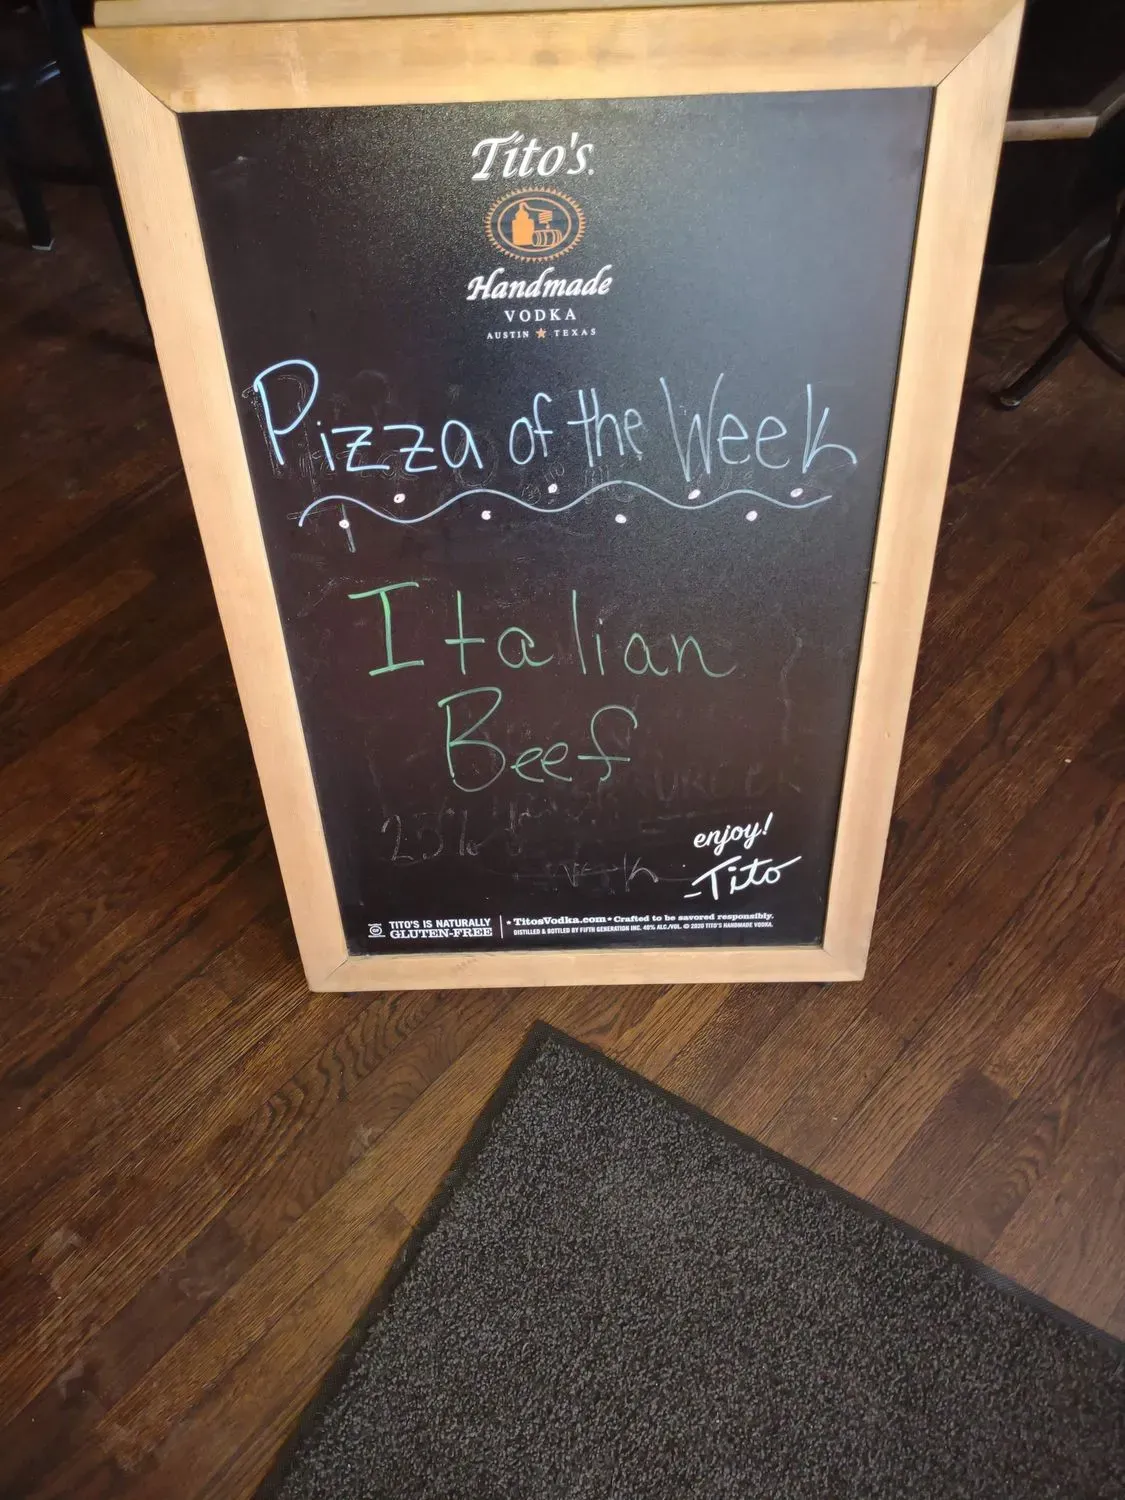 Tito's.
Handmade
VODKA
AUSTIN ★ TEXAS
Pizza of the Week
Italian
Beef
25%
enjoy!
-Tito
TITO'S IS NATURALLY
GLUTEN-FREE
• TitosVodka.com • Crafted to be savored responsibly.
DISTILLED & BOTTLED BY FIFTH GENERATION INC. 40% ALC./VOL. © 2020 TITO'S HANDMADE VODKA.